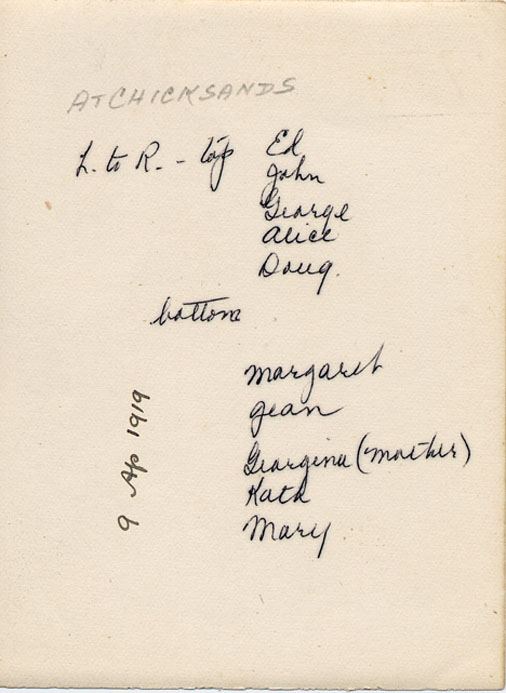 AT CHICKSANDS
L. to R. - top Ed
John
George
Alice
Doug.
bottom
Margaret
Jean
Georgina (mother)
Kath
Mary
9 Ap 1919